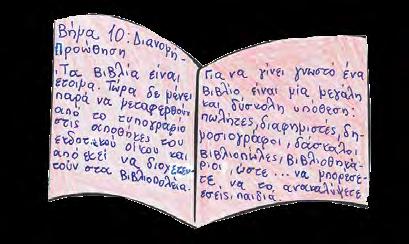 Βήμα 10: Διανομή -
Προώθηση
Τα βιβλία είναι
έτοιμα. Τώρα δε μένει
παρά να μεταφερθούν
από το τυπογραφείο
στις αποθήκες του
εκδοτικού οίκου και
από εκεί να διοχετευ-
τούν στα βιβλιοπωλεία.
Για να γίνει γνωστό ένα
βιβλίο είναι μία μεγάλη
και δύσκολη υπόθεση:
πωλητές, διαφημιστές, δη-
μοσιογράφοι, δάσκαλοι
βιβλιοπώλες, βιβλιοθηκά-
ριοι, ώστε... να μπορέσε-
τε να το ανακαλύψετε
εσείς, παιδιά.